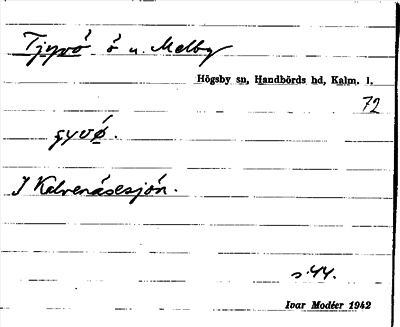 Tjyvö ö u. Melby
Högsby sn, Handbörds hd, Kalm. l.
72
çyvǿ.
I Kalvenäsesjön.
s. 44.
Ivar Modéer 1942